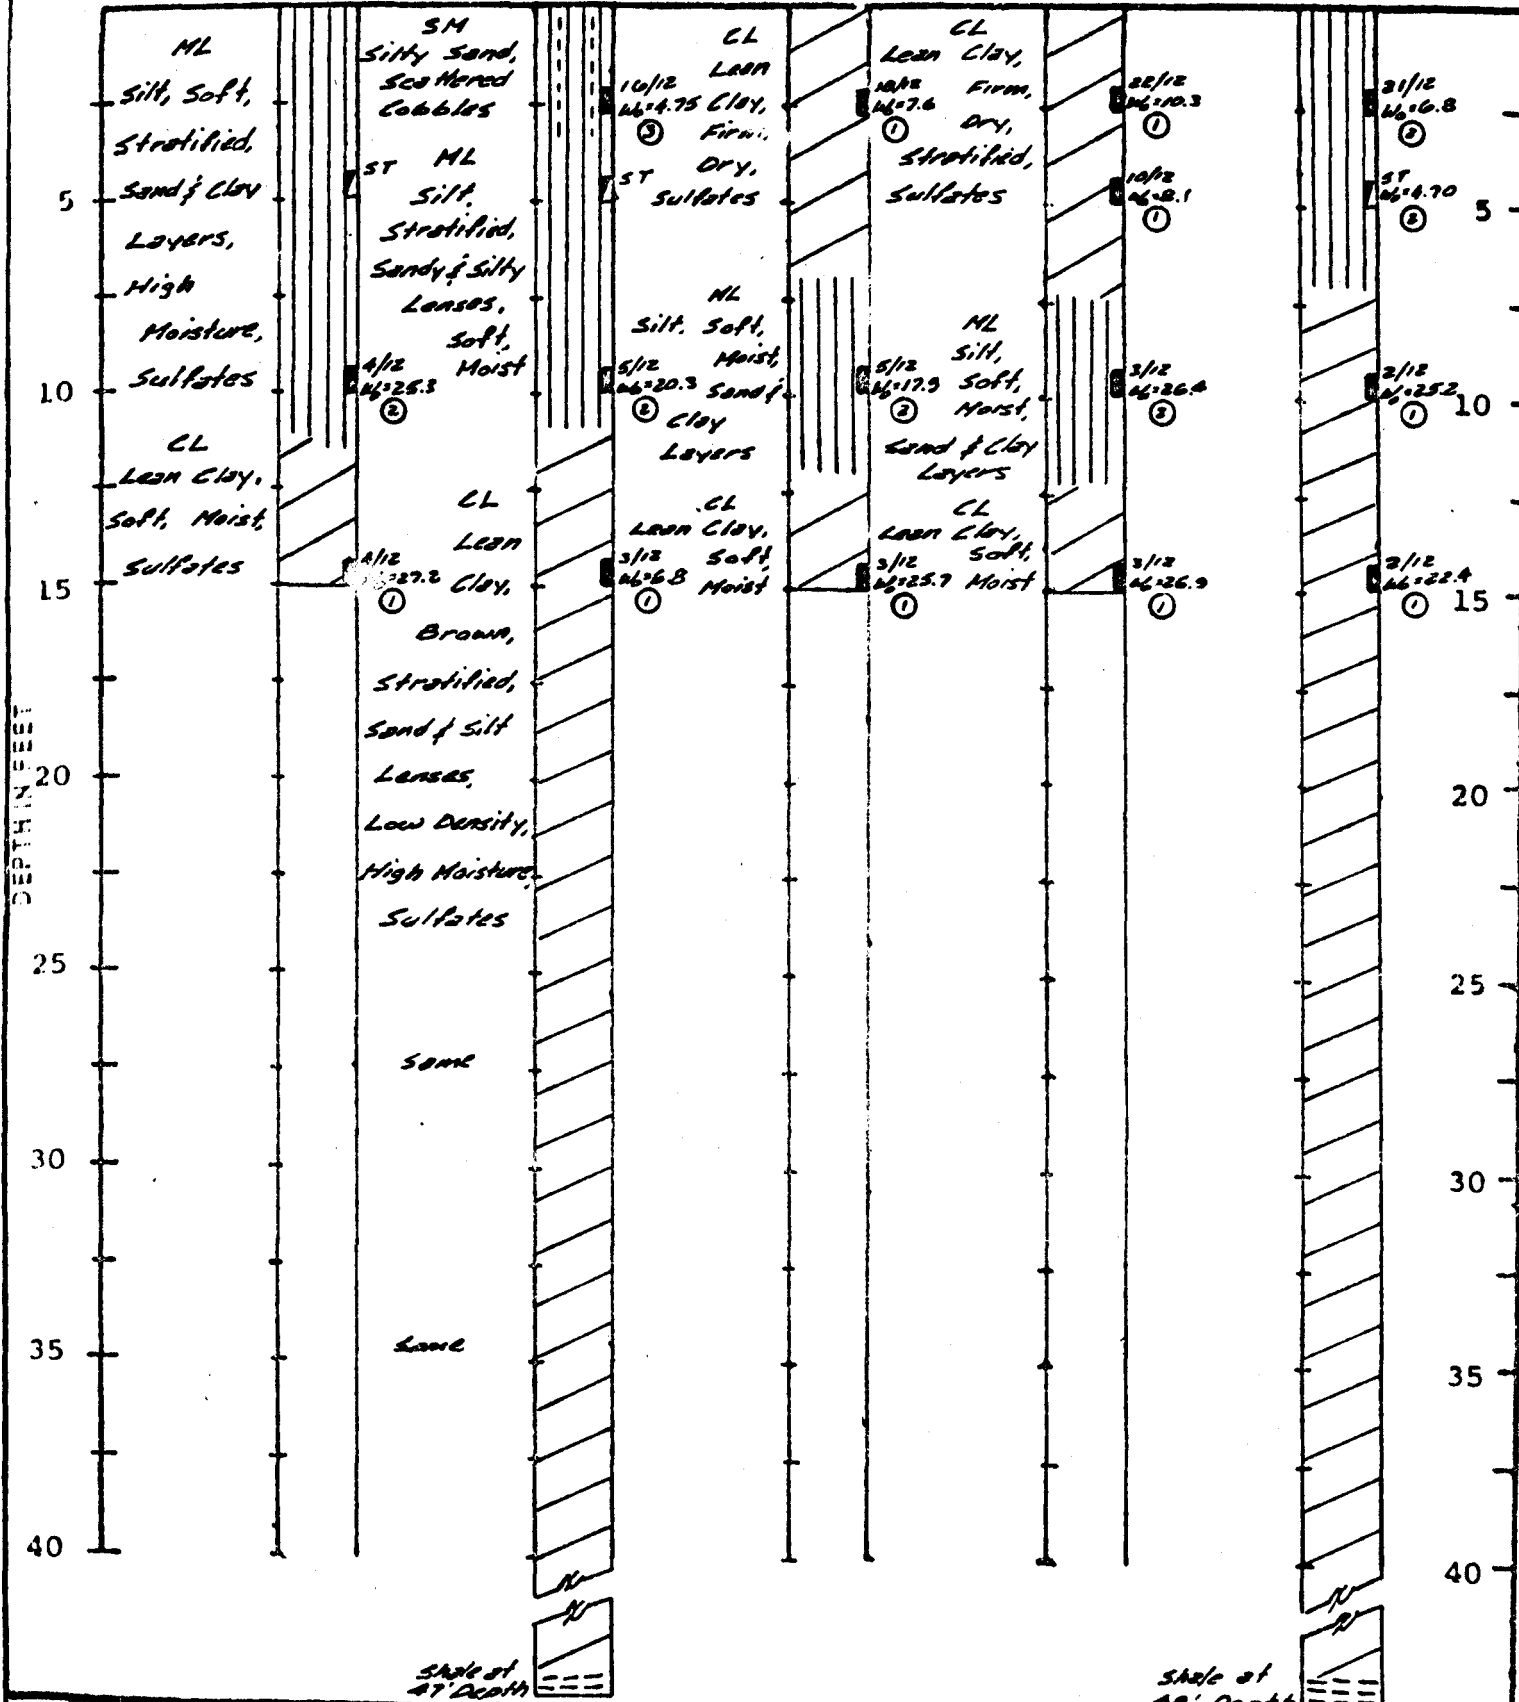 ML
Silt, Soft,
Stratified,
Sand & Clay
Layers,
High
Moisture,
Sulfates
CL
Lean Clay,
Soft, Moist,
Sulfates
ST
4/12
Wo=25.3
2
4/12
=27.2
1
SM
Silty Sand,
Scattered
Cobbles
ML
Silt,
Stratified,
Sandy & Silty
Lenses,
Soft,
Moist
CL
Lean
Clay,
Brown,
Stratified,
Sand & Silt
Lenses,
Low Density,
High Moisture,
Sulfates
Same
Same
Shale at
47' Depth
16/12
Wo=4.75
3
ST
5/12
Wo=20.3
2
3/12
Wo=6.8
1
CL
Lean
Clay,
Firm,
Dry,
Sulfates
ML
Silt, Soft,
Moist,
Sand &
Clay
Layers
CL
Lean Clay,
Soft,
Moist
Wo=7.6
1
5/12
Wo=17.9
2
3/12
Wo=25.7
1
CL
Lean Clay,
Firm,
Dry,
Stratified,
Sulfates
ML
Silt,
Soft,
Moist,
Sand & Clay
Layers
CL
Lean Clay,
Soft,
Moist
22/12
Wo=10.3
1
10/12
Wo=8.1
1
3/12
Wo=26.4
2
3/12
Wo=26.9
1
Shale at
Depth
21/12
Wo=6.8
2
ST
Wo=4.70
2
2/12
Wo=25.2
1
2/12
Wo=22.4
1
DEPTH IN FEET
5
10
15
20
25
30
35
40
5
10
15
20
25
30
35
40